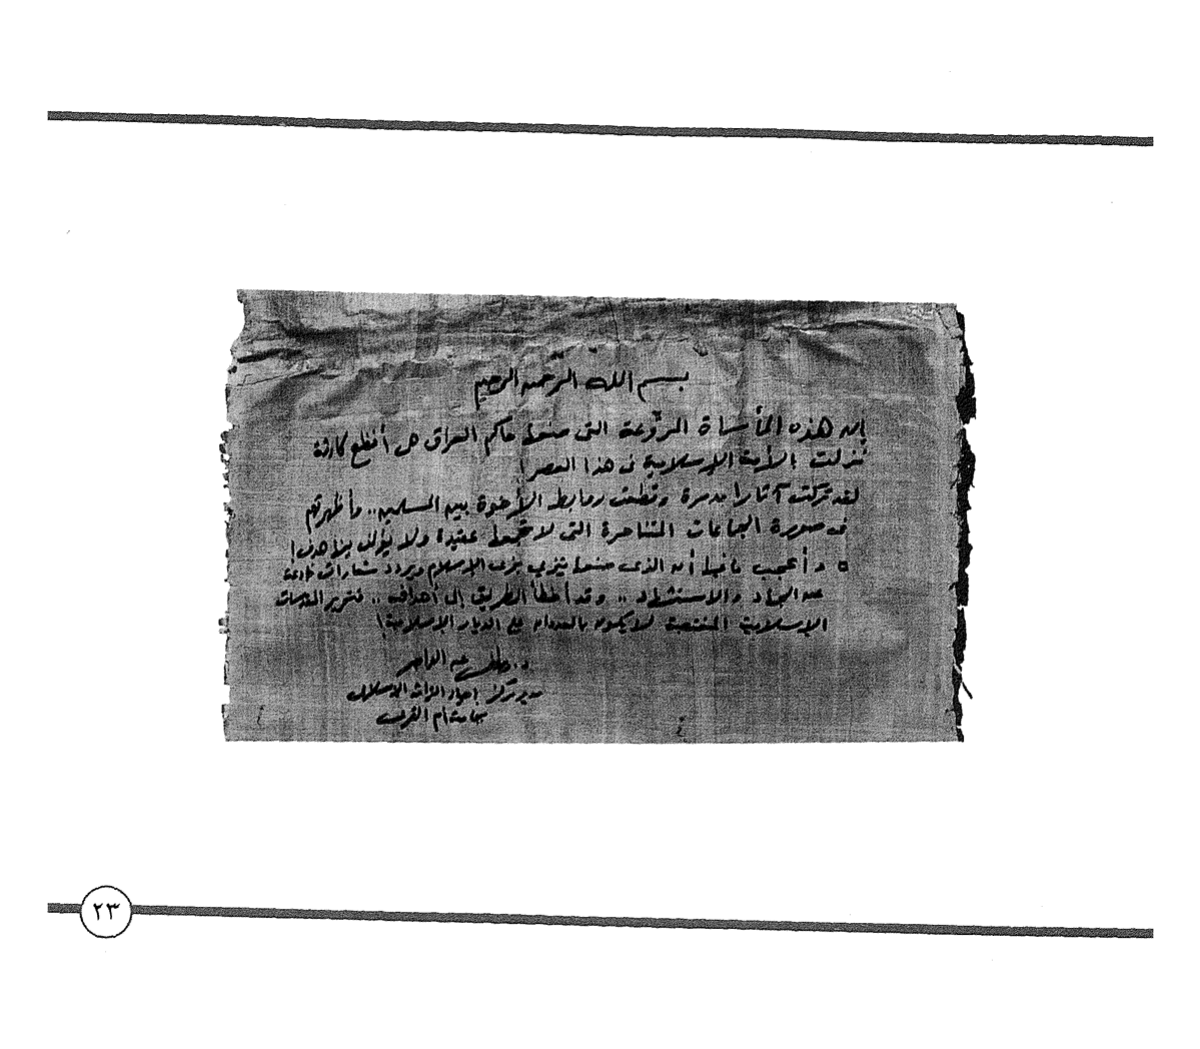 بسم الله الرحمن الرحيم
إن هذه المأساة المروّعة التى صنعها حاكم العراق هى أفظع كارثة
نزلت بالأمة الإسلامية فى هذا العصر!
لقد تركت آثارا مدمرة وقطعت روابط الأخوة بين المسلمين.. وأظهرتهم
فى صورة الجماعات المتناحرة التى لا تجمعها عقيدة ولا يؤلف بينها هدف!
وأعجب ما فيها أن الذى صنعها يتزيى بزى الإسلام ويردد شعارات خادعة
عن الجهاد والاستشهاد .. وقد أخطأ الطريق إلى أهدافه .. فتحرير المقدسات
الإسلامية المغتصبة لا يكون بالعدوان على الديار الإسلامية!
د. عبد
مدير مركز إحياء التراث الإسلامى
بجامعة أم القرى
٢٣